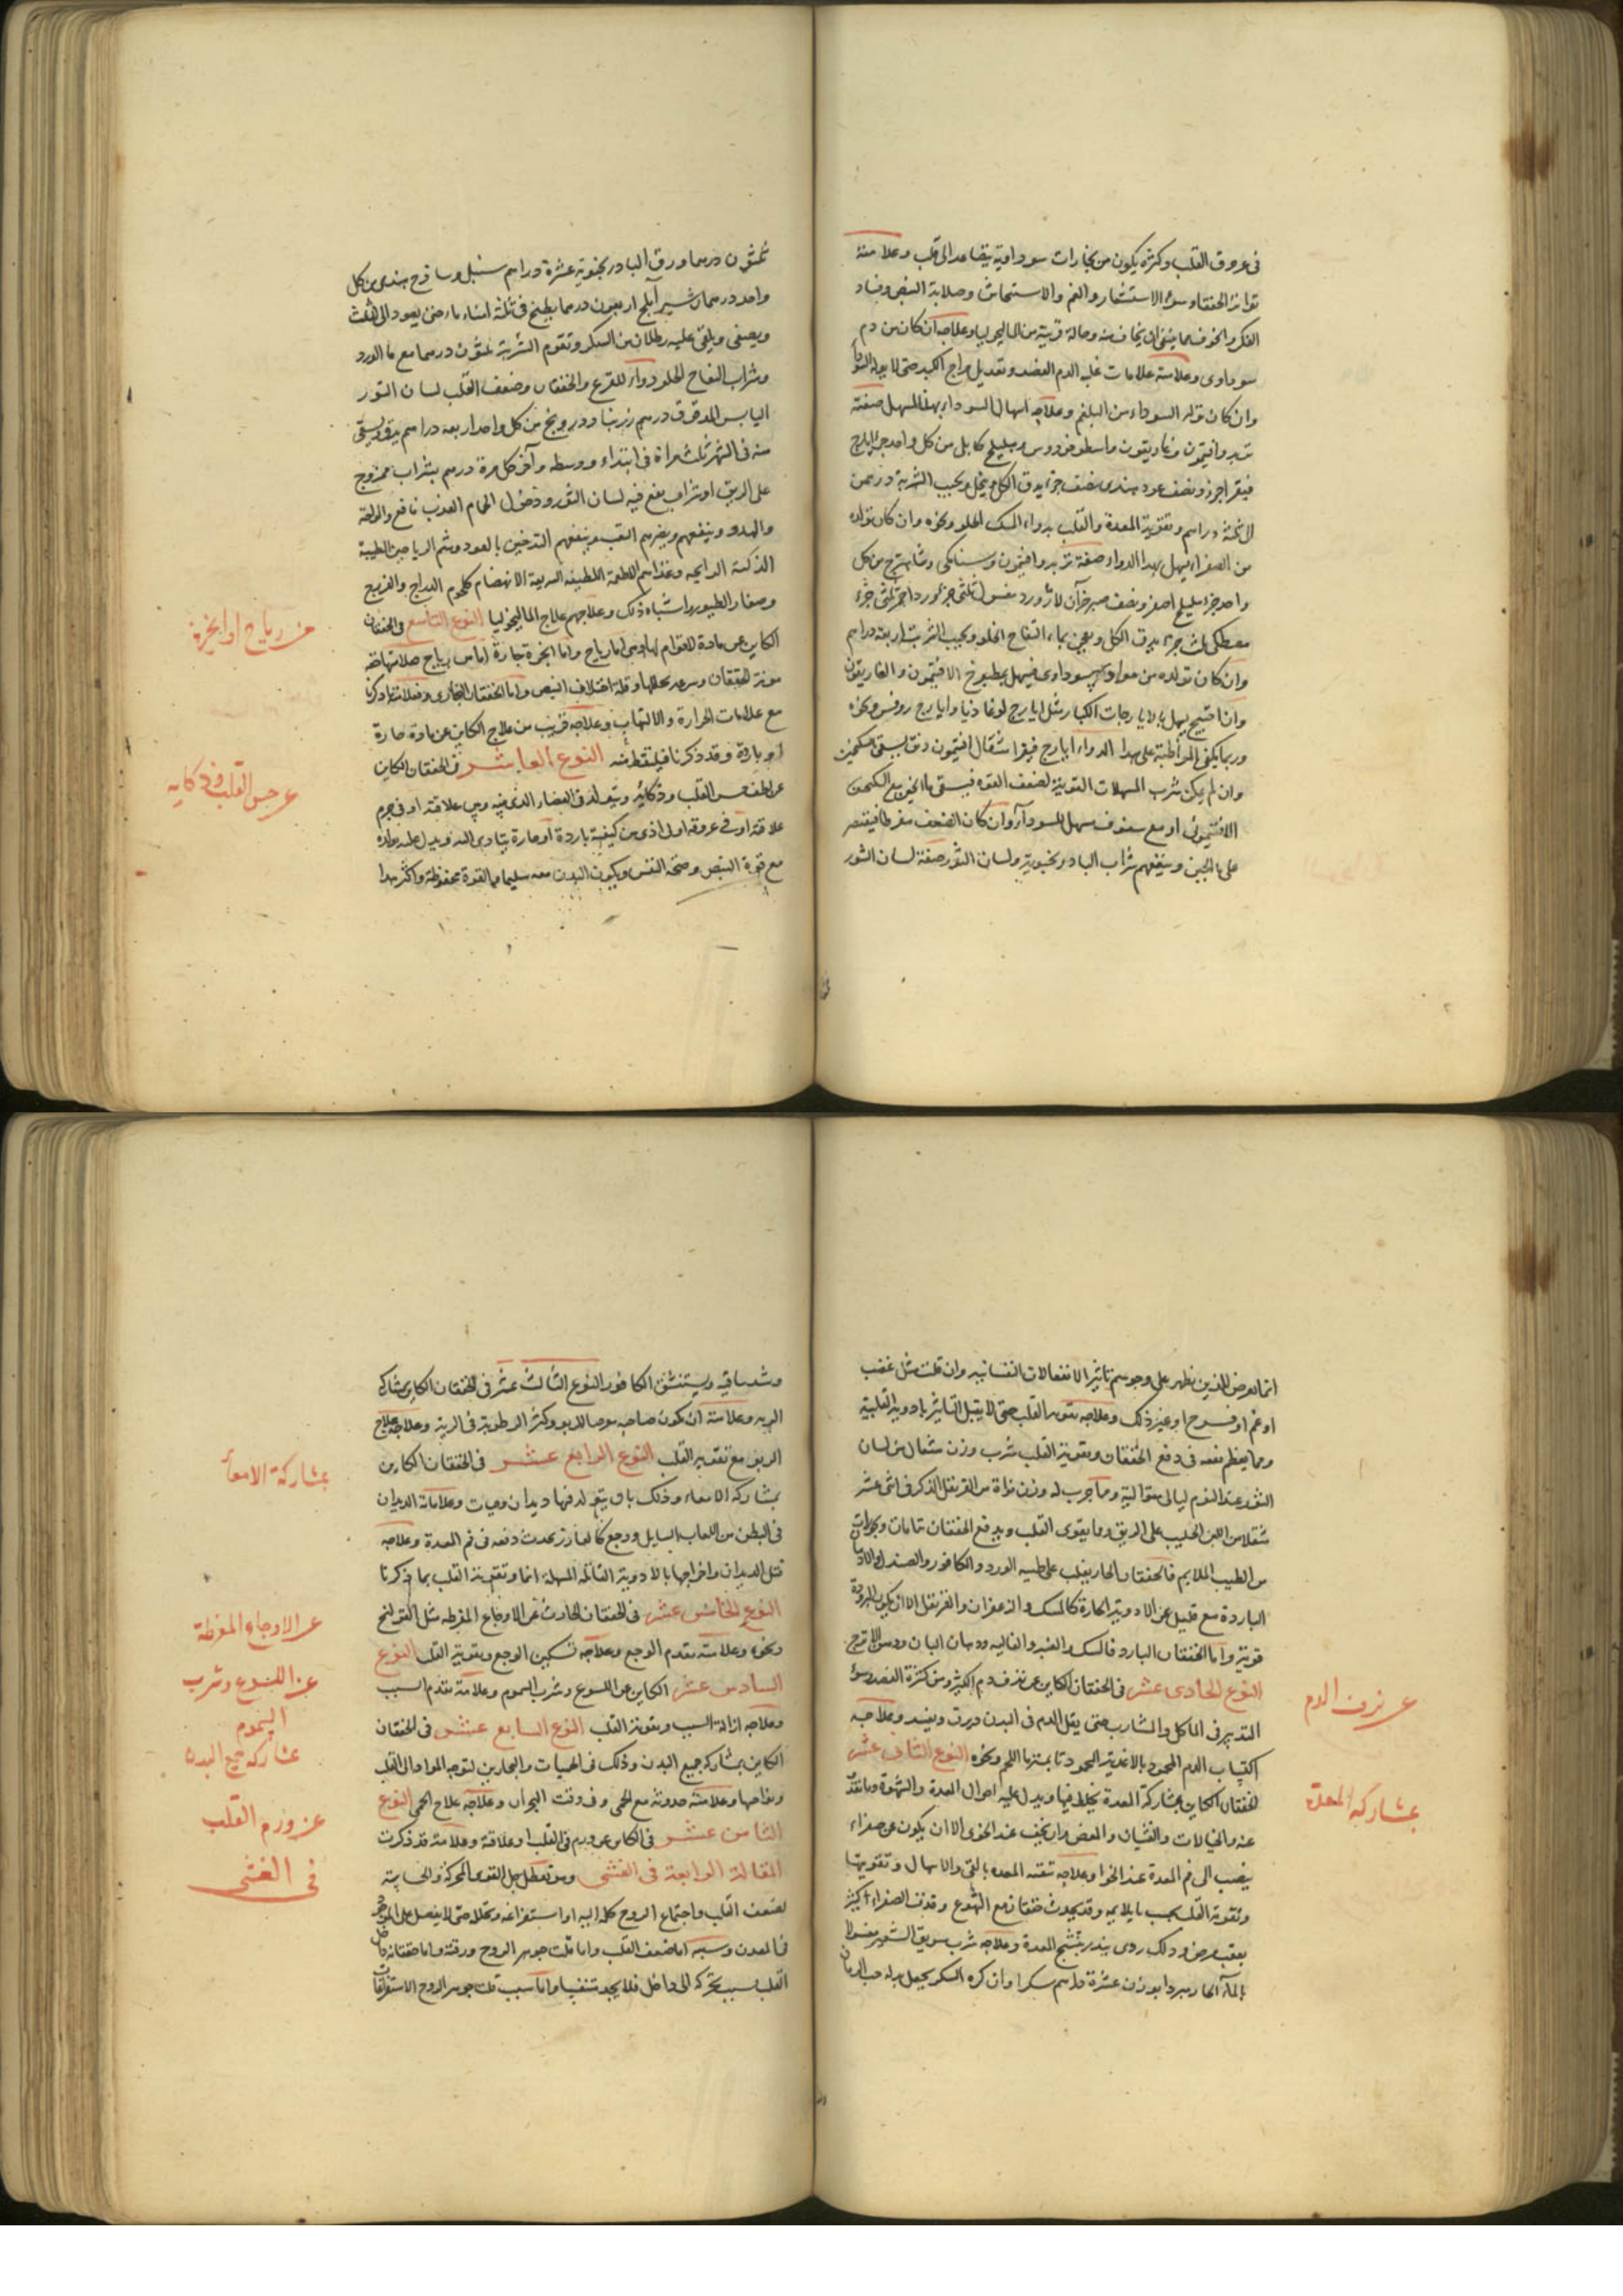 فى عروق القلب وكثرة يكون من بخارات سوداوية يتصاعد الى قلب وعلامته
تواتر الخفقان وسوء الاستشعار والغم والاستحاش وصلابة النبض وفساد
الفكر والخوف مما ينبغى ان يخاف منه وحالة قريبة من الماليخوليا وعلاجه ان كان من دم
سوداوى وعلامته علامات غلبه الدم الفصد وتعديل مزاج الكبد حتى لا يولد السودا
وان كان تولد السوداء من البلغم وعلاجه اسهال السوداء بهذا المسهل صفته
تربد وافتيمون وغاريقون واسطوخودوس وهليلج كابلى من كل واحد جزء ايارج
فيقرا جزء ونصف عود هندى نصف جزء يدق الكل وينخل ويحبب الشربة درهمين
الى ثلثة دراهم وتقوية المعدة والقلب بدواء المسك الحلو ونحوه وان كان تولده
من الصفراء يسهل بهذا الدواء صفته تربد وافتيمون وسنامكى وشاهترج من كل
واحد جزء هليلج اصفر ونصف صبر جزآن لازورد مغسول ثلثى جزء ورد احمر ثلثى جزء
مصطكى ثلث جزء يدق الكل ويعجن بماء التفاح الحلو ويحبب الشربة اربعة دراهم
وان كان تولده من سوداوى فيسهل بمطبوخ الافتيمون والغاريقون
وان احتيج يسهل بالايارجات الكبار مثل ايارج لوغاديا وايارج روفس ونحوه
وربما يكفى المواظبة على هذا الدواء ايارج فيقرا مثقال افتيمون دانق يسقى بسكنجبين
وان لم يمكن شرب المسهلات القوية لضعف القوة فيسقى ماء الجبن مع السكنجبين
الافتيمونى او مع سفوف مسهل للسوداء وان كان الضعف مفرطا فيقتصر
على ماء الجبن وينفعهم شراب البادرنجبويه ولسان الثور صفته لسان الثور
ثلثون درهما ورق البادرنجبويه عشرة دراهم سنبل وساذج هندى من كل
واحد درهمان شير آملج اربعون درهما يطبخ فى ثلثة امناء ماء حتى يعود الى الثلث
ويصفى ويلقى عليه رطلان من السكر وتقوم الشربة ثلثون درهما مع ماء الورد
وشراب التفاح الحلو دواء للفزع والخفقان وضعف القلب لسان الثور
اليابس المدقوق درهم زرنباد ودرونج من كل واحد اربعة دراهم يدق ويسقى
منه فى الشهر ثلث مرات فى ابتداء ووسطه وآخره كل مرة درهم بشراب ممزوج
على الريق او شراب ينقع فيه لسان الثور ودخول الحمام العذب نافع والراحة
والهدو وينفعهم ويضرهم التعب وينفعهم التدخين بالعود وشم الرياحين الطيبة
الذكية الرائحه وغذاهم الاطعمة اللطيفه السريعة الانهضام كلحوم الدراج والفريج
وصغار الطيور واشباه ذلك وعلاجهم علاج الماليخوليا النوع التاسع فى الخفقان
الكاين عن مادة لا قوام لها وهى اما رياح واما ابخرة حارة اما من رياح فعلامتها خفة
مع علامات الحرارة والالتهاب وعلاجه قريب من علاج الكاين عن مادة حارة
او باردة وقد ذكرنا فيلتقط منه النوع العاشر فى الخفقان الكاين
عن لطف حس القلب وذكائه ويتولد فى الفضاء الذى فيه وبين علاقته او فى جرم
علاقته او فى عروقه ادنى اذى من كيفية باردة او حارة يتادى اليه ويدل عليه
مع قوة النبض وصحة النفس ويكون البدن معه سليما والقوة محفوظة واكثر هذا
من رياح او ابخرة
عن حس القلب وذكايه
انما يعرض للذين يظهر على وجوههم تاثير الانفعالات النفسانيه وان قلت مثل غضب
او غم او فرح او غير ذلك وعلاجه تقوية القلب حتى لا يقبل التاثير بادوية القلبية
ومما يعظم نفعه فى دفع الخفقان وتقوية القلب شرب وزن مثقال من لسان
الثور عند النوم ليالى متوالية ومما جرب له وزن نواة من القرنفل الذكر فى اثنى عشر
مثقلا من اللبن الحليب على الريق ومما يقوى القلب ويدفع الخفقان
من الطيب الملايم فالخفقان الحار يغلب على طيبه الورد والكافور والصندل والادهان
الباردة مع قليل من الادوية الحارة كالمسك والزعفران والقرنفل الا ان يكون البرودة
قوية واما الخفقان البارد فالمسك والعنبر والغاليه ودهان البان ودهن الاترج
النوع الحادى عشر فى الخفقان الكاين عن نزف دم الكثير ومن كثرة الفصد وسوء
التدبير فى الماكل والمشارب حتى يقل الدم فى البدن ويرق ويفسد وعلاجه
اكتساب الدم المحمود بالاغذية المحمودة بمنزلة اللحم ونحوه النوع الثانى عشر
الخفقان الكاين بمشاركة المعدة بخلط فيها ويدل عليه احوال المعدة والشهوة وما تقذف
عنه والخيالات والغثيان والمغص وان يخف عند الخوى الا ان يكون عن صفراء
ينصب الى فم المعدة عند الخوا وعلاجه تنقية المعده بالقى والاسهال وتقويتها
وتقوية القلب بحسب ما يلايمه وقد يحدث خفقان مع التهوع وقذف الصفراء اكثر
بالماء الحار مبردا بوزن عشرة دراهم سكر وان كره السكر يجعل بدله حب الرمان
عن نزف الدم
بمشاركة المعدة
وشد ساقيه ويستنشق الكافور النوع الثالث عشر فى الخفقان الكاين بمشاركة
الريه وعلامته ان يكون صاحبه مع الربو وكثرة الرطوبة فى الرية وعلاجه علاج
الربو مع تقوية القلب النوع الرابع عشر فى الخفقان الكاين
بمشاركة الامعاء وذلك بان يتولد فيها ديدان وحيات وعلامات الديدان
فى البطن من اللعاب السايل ووجع كالغارز يحدث دفعه فى فم المعدة وعلاجه
قتل الديدان واخراجها بالادوية القاتله المسهلة انما وتقوية القلب بما ذكرنا
النوع الخامس عشر فى الخفقان الحادث عن الاوجاع المفرطه مثل القولنج
ونحوه وعلامته تقدم الوجع وعلاجه تسكين الوجع وتقوية القلب النوع
السادس عشر الكاين عن اللسوع وشرب السموم وعلامته تقدم السبب
وعلاجه ازالة السبب وتقوية القلب النوع السابع عشر فى الخفقان
الكاين بمشاركة جميع البدن وذلك فى الحميات والبحارين لتوجه المواد الى القلب
ونواحيها وعلامته حدوثه مع الحمى وفى وقت البحران وعلاجه علاج الحمى النوع
الثامن عشر فى الكاين عن ورم فى القلب او علاقته وعلامته قد ذكرت
المقالة الرابعة فى الغشى وهو تعطل جل القوى المحركة والحساسة
لضعف القلب واجتماع الروح كله اليه او استفراغه وتحلله حتى لا يفضل على الموجود
فى المعدن وسببه اما ضعف القلب واما قلت جوهر الروح ورقته واما خفقانه داخل
القلب بسبب تحركه الى داخل فلا يجد متنفسا واما سبب قلت جوهر الروح الاستفراغات
بمشاركة الامعاء
عن الاوجاع المفرطة
عن اللسوع وشرب
السموم
بمشاركة جميع البدن
عن ورم القلب
فى الغشى